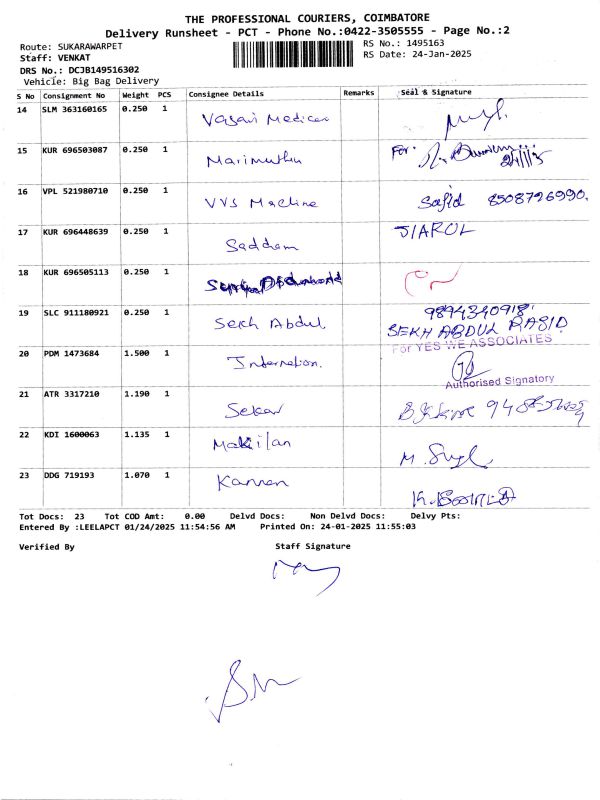 THE PROFESSIONAL COURIERS, COIMBATORE
Delivery Runsheet - PCT - Phone No.:0422-3505555 - Page No.:2
Route: SUKARAWARPET
RS No.: 1495163
Staff: VENKAT
RS Date: 24-Jan-2025
DRS No.: DCJB149516302
Vehicle: Big Bag Delivery
S No Consignment No Weight PCS Consignee Details Remarks Seal & Signature
14 SLM 363160165 0.250 1 Vasavi Medical
15 KUR 696503087 0.250 1 Marimuthu For.
16 VPL 521980710 0.250 1 VVS Machine Sajid 8508726990.
17 KUR 696448639 0.250 1 Saddam JIAROL
18 KUR 696505113 0.250 1
19 SLC 911180921 0.250 1 Sekh Abdul 9894340918 SEKH ABDUL RASID
For YES WE ASSOCIATES
20 PDM 1473684 1.500 1
Authorised Signatory
21 ATR 3317210 1.190 1 Sekar
22 KDI 1600063 1.135 1 Makilan
23 DDG 719193 1.070 1 Kannan
Tot Docs: 23 Tot COD Amt: 0.00 Delvd Docs: Non Delvd Docs: Delvy Pts:
Entered By :LEELAPCT 01/24/2025 11:54:56 AM Printed On: 24-01-2025 11:55:03
Verified By Staff Signature